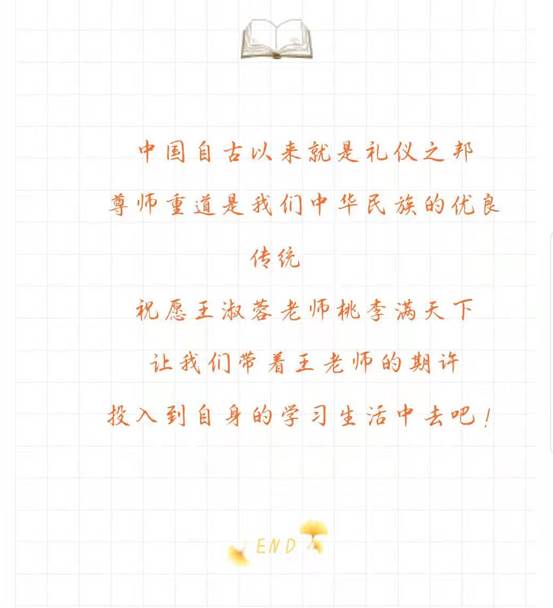 中国自古以来就是礼仪之邦
尊师重道是我们中华民族的优良
传统
祝愿王淑蓉老师桃李满天下
让我们带着王老师的期许
投入到自身的学习生活中去吧！
END